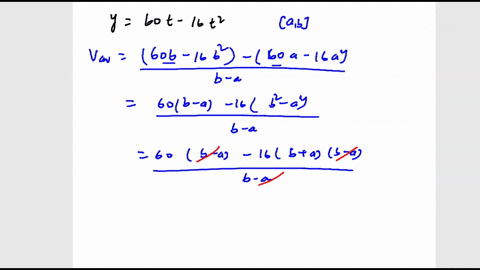 y = 60t - 16t² [a,b]
Vav = (60b - 16b²) - (60a - 16a²) / b-a
= 60(b-a) - 16(b²-a²) / b-a
= 60 (b-a) - 16(b+a)(b-a) / b-a